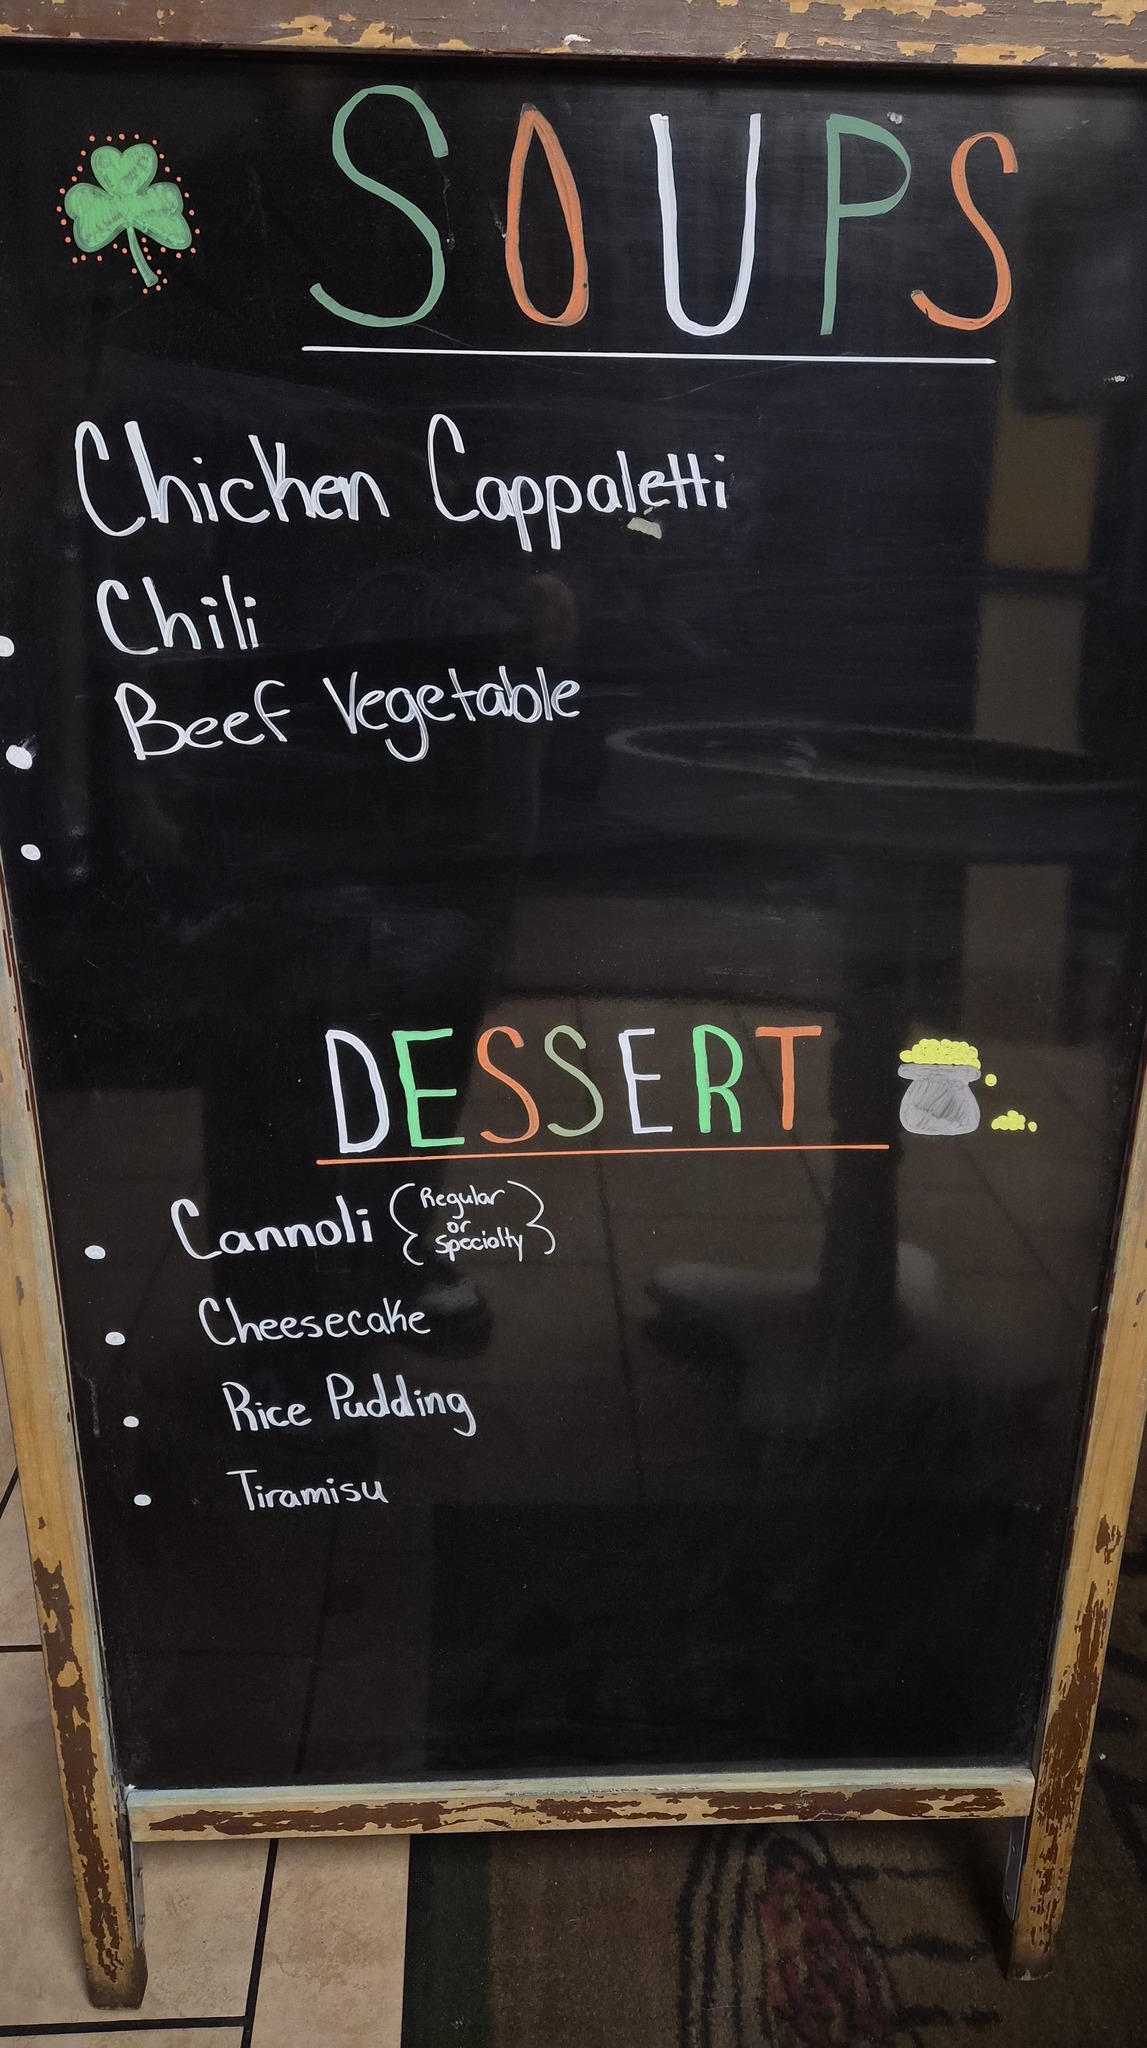 SOUPS
Chicken Cappaletti
• Chili
• Beef Vegetable
•
DESSERT
• Cannoli (Regular
or
Specialty)
• Cheesecake
• Rice Pudding
• Tiramisu